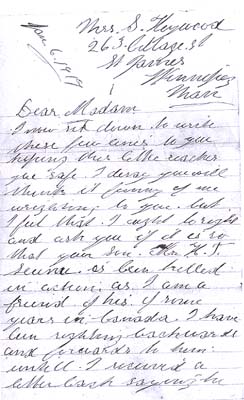 Jan 6. 1919
Mrs. S. Heywood
263. Village St
St James
Winnipeg
Man
Dear Madam
I now sit down to write
these few lines to you
hoping this letter reaches
you safe. I dersay you will
think it funny of me
wrighting to you. but
I feel that I ought to right
and ask you if it is so
that your son. H. J.
as been killed
in action. as. I am a
friend of his. of some
years in Canada. I have
been righting backwards
and forwards to him.
untill. I received a
letter back saying he